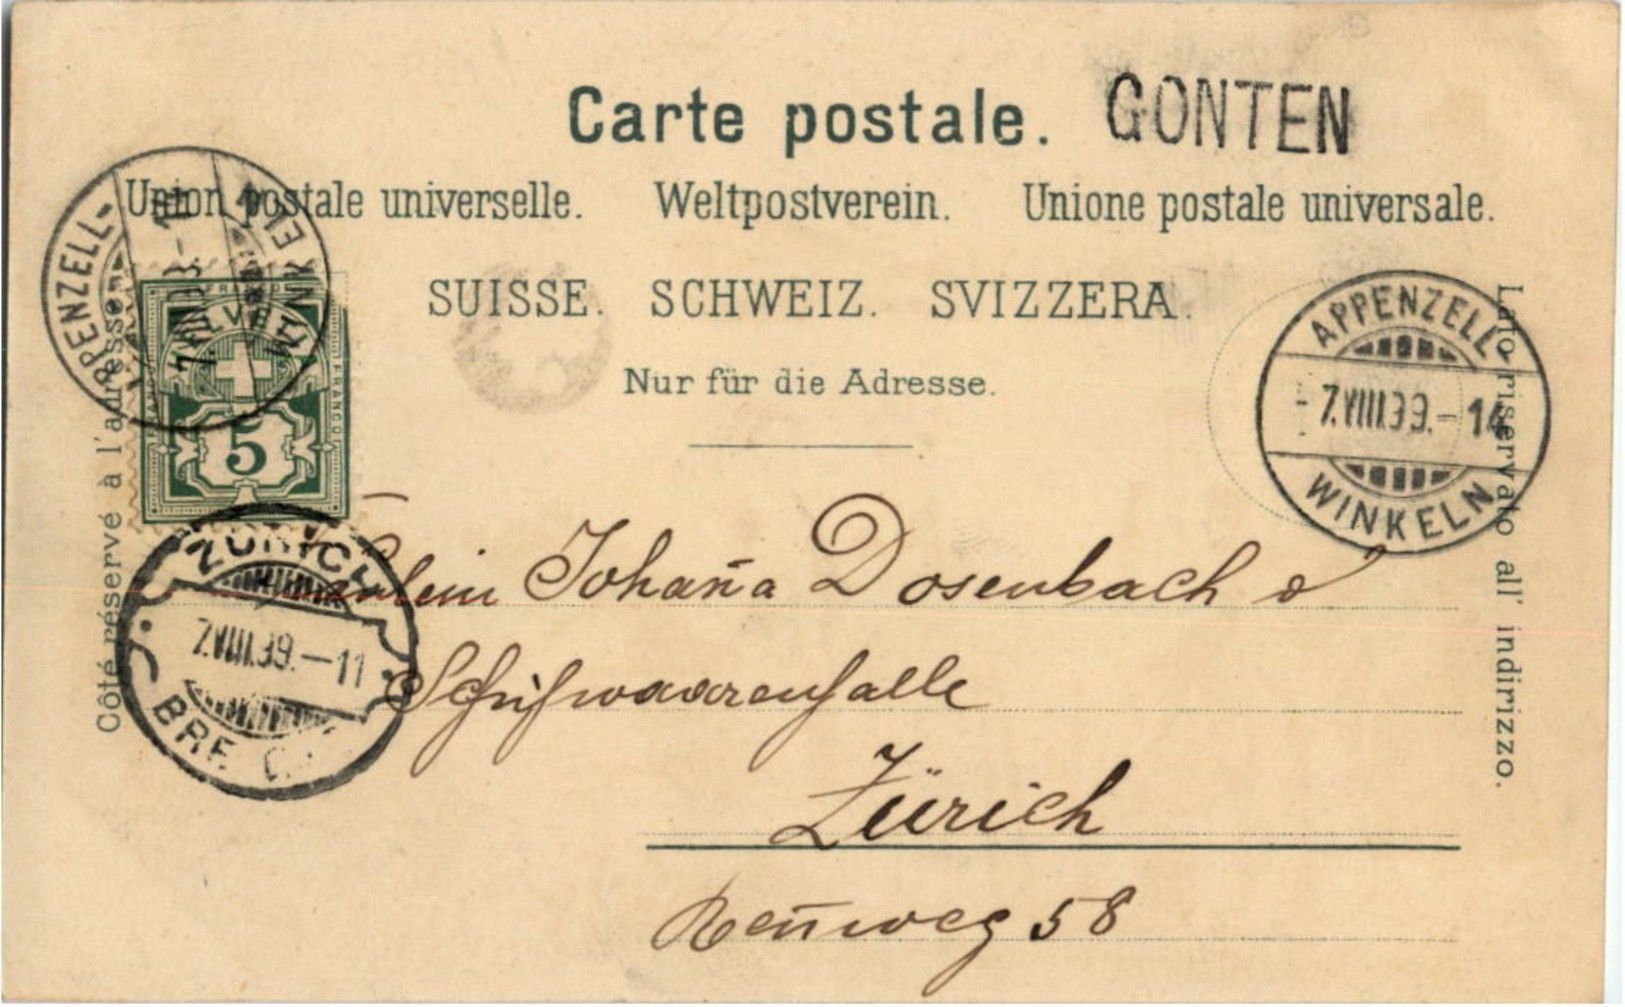 Carte postale. GONTEN
Union postale universelle. Weltpostverein. Unione postale universale.
SUISSE. SCHWEIZ. SVIZZERA.
Nur für die Adresse.
Côté réservé à l'adresse.
Lato riservato all' indirizzo.
APPENZELL-
WINKELN
7.VIII.99.-1
HELVETIA
FRANCO
5
APPENZELL-
7.VIII.99.-14
WINKELN
ZÜRICH
7.VIII.99.-11
BRF.
Fräulein Johan̄a Dosenbach
Schuhwaarenhalle
Zürich
Ren̄weg 58